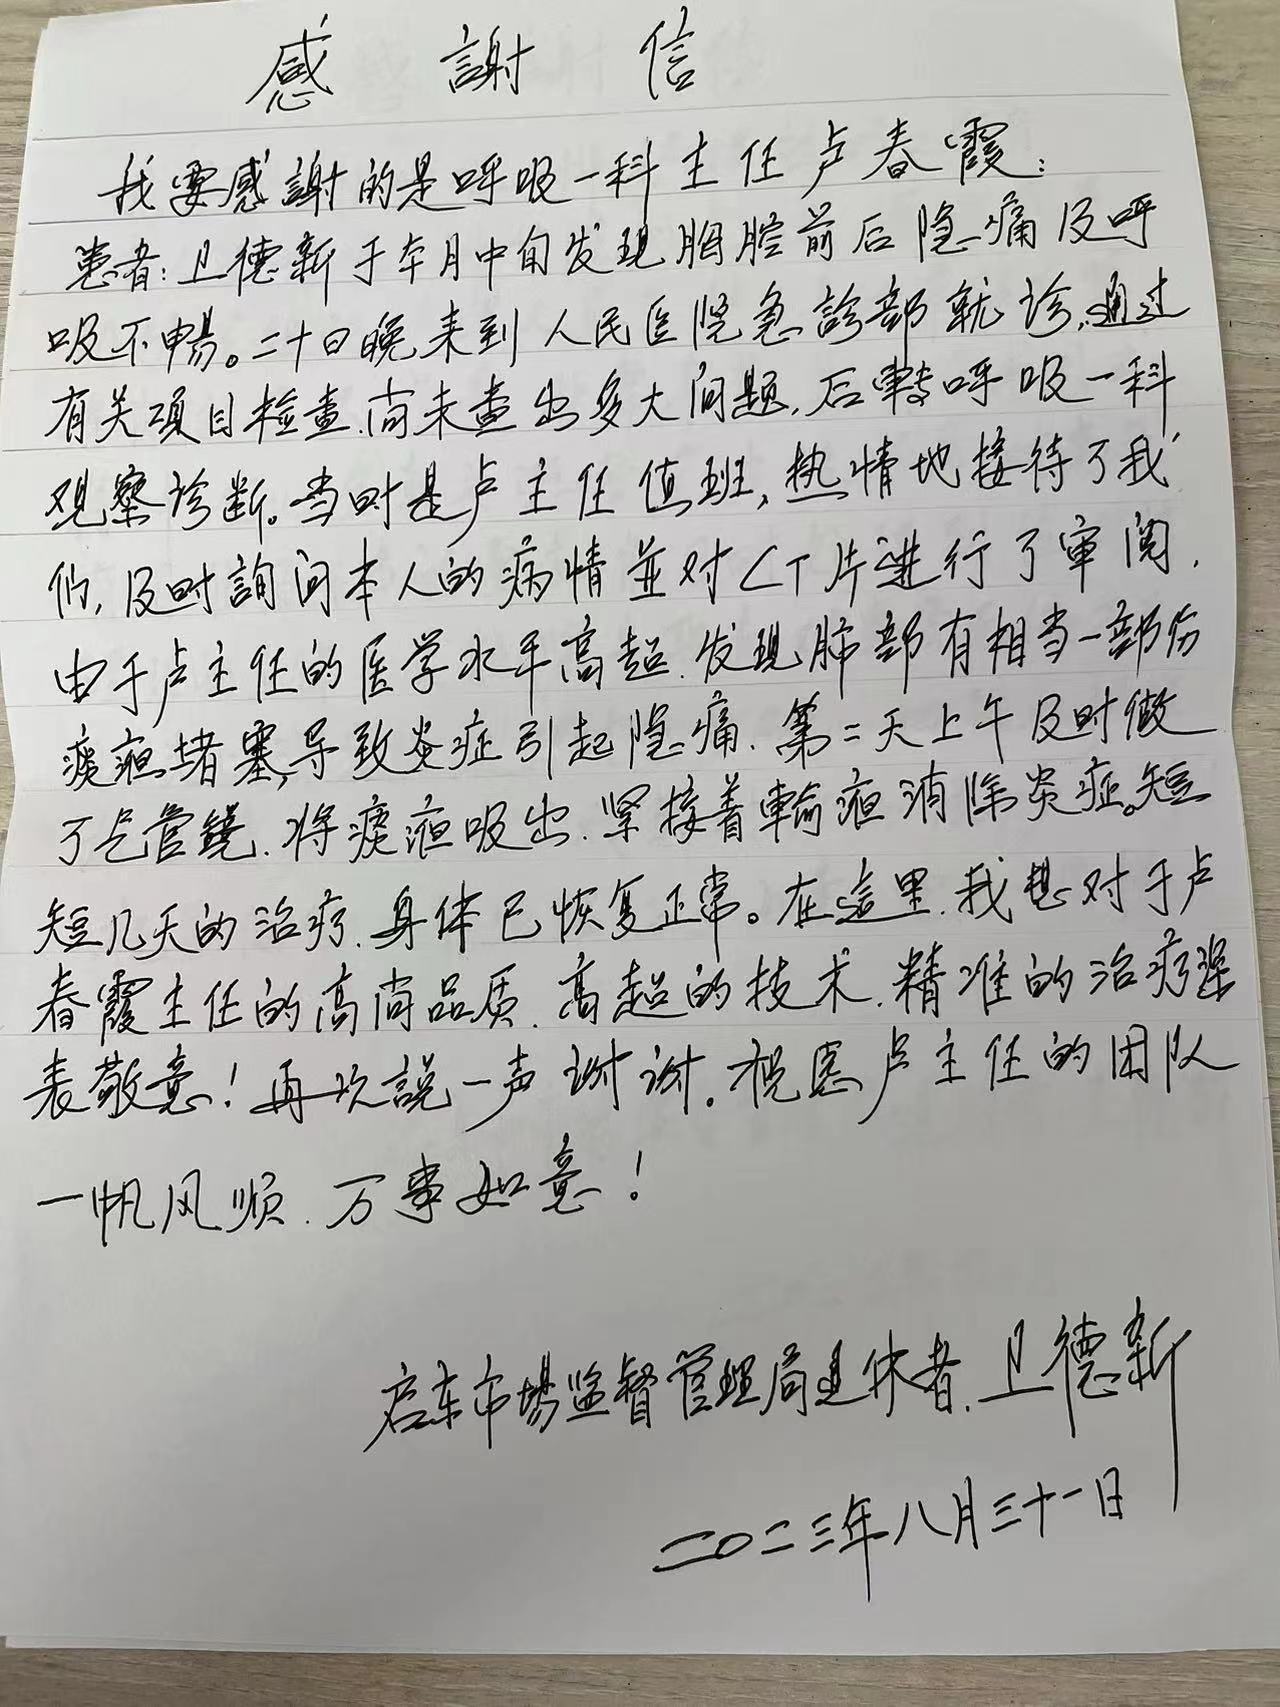 感謝信
我要感謝的是呼吸一科主任卢春霞：
患者：卫德新于本月中旬发现胸腔前后隐痛及呼
吸不畅。二十日晚来到人民医院急診部就诊，通过
有关项目检查，尚未查出多大问题，后转呼吸一科
观察诊断。当时是卢主任值班，热情地接待了我
们，及时詢问本人的病情並对CT片进行了审阅，
由于卢主任的医学水平高超，发现肺部有相当一部份
痰液堵塞，导致炎症引起隐痛，第二天上午及时做
了气管镜，将痰液吸出，紧接着輸液消除炎症。短
短几天的治疗，身体已恢复正常。在这里，我想对于卢
春霞主任的高尚品质，高超的技术，精准的治疗深
表敬意！再次説一声谢谢。祝愿卢主任的团队
一帆风顺，万事如意！
启东市场监督管理局退休者，卫德新
二〇二三年八月三十一日